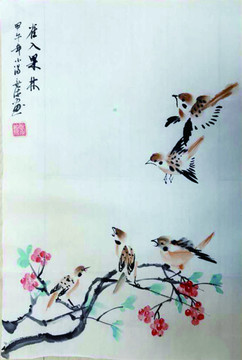 雀入果林
甲午年小满